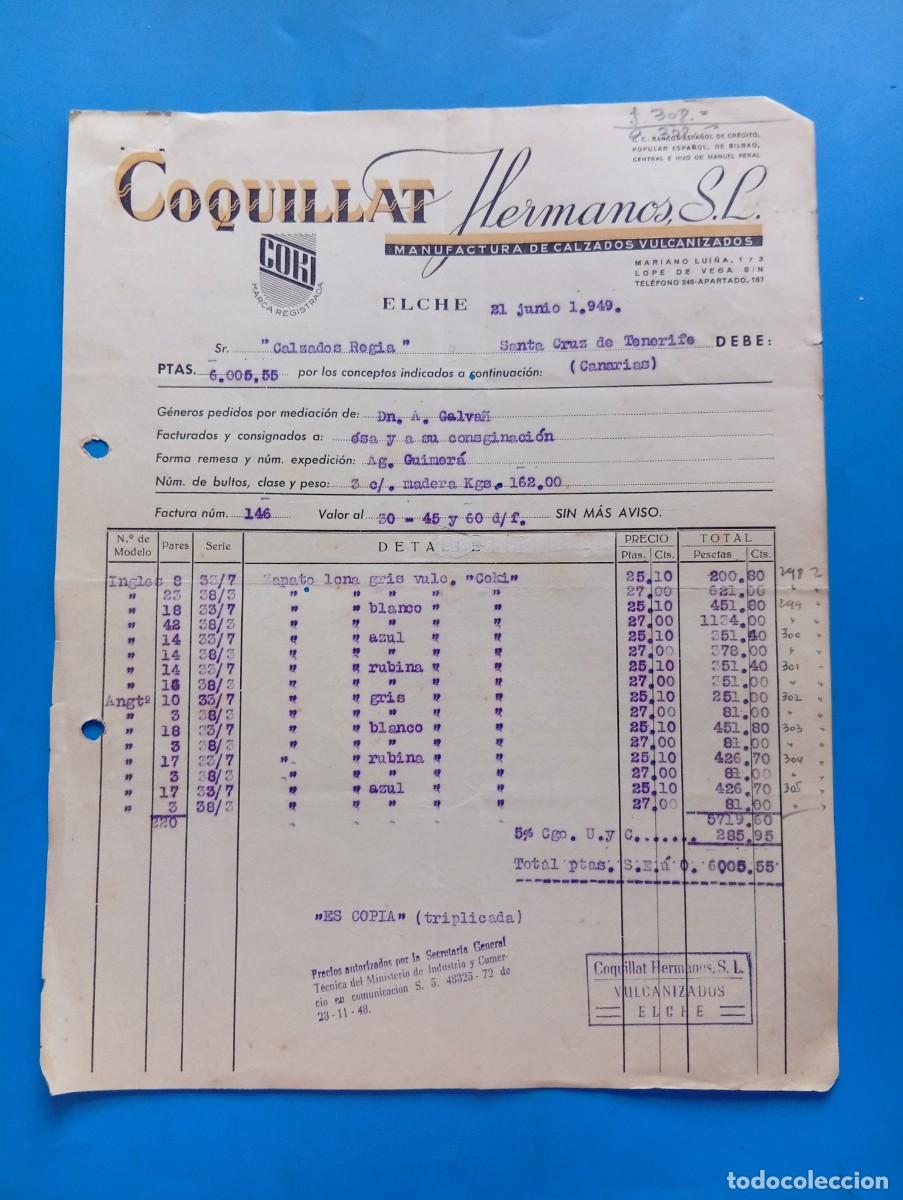 J. 308.=
C. C. BANCOS ESPAÑOL DE CRÉDITO,
POPULAR ESPAÑOL, DE BILBAO,
CENTRAL E HIJO DE MANUEL PERAL
COQUILLAT Hermanos, S.L.
MANUFACTURA DE CALZADOS VULCANIZADOS
COKI
MARCA REGISTRADA
MARIANO LUIÑA, 1 Y 3
LOPE DE VEGA S/N
TELÉFONO 246-APARTADO, 167
ELCHE 21 junio 1.949.
Sr. "Calzados Regia" Santa Cruz de Tenerife DEBE:
PTAS. 6.005,55 por los conceptos indicados a continuación: (Canarias)
Géneros pedidos por mediación de: Dn. A. Galvañ
Facturados y consignados a: ésa y a su consginación
Forma remesa y núm. expedición: Ag. Guimerá
Núm. de bultos, clase y peso: 3 c/. madera Kgs. 162.00
Factura núm. 146 Valor al 30 - 45 y 60 d/f. SIN MÁS AVISO.
N.º de Modelo Pares Serie DETALLE PRECIO Ptas. Cts. TOTAL Pesetas Cts.
Ingles 8 33/7 Zapato lona gris vulc. "Coki" 25.10 200.80 298 2
" 23 38/3 " " " " " 27.00 621.00
" 18 33/7 " " blanco " " 25.10 451.80 299 "
" 42 38/3 " " " " " 27.00 1134.00 " "
" 14 33/7 " " azul " " 25.10 351.40 300 "
" 14 38/3 " " " " " 27.00 378.00 " "
" 14 33/7 " " rubina " " 25.10 351.40 301 "
" 16 38/3 " " " " " 27.00 351.00 " "
Angtº 10 33/7 " " gris " " 25.10 251.00 302 "
" 3 38/3 " " " " " 27.00 81.00 " "
" 18 33/7 " " blanco " " 25.10 451.80 303 "
" 3 38/3 " " " " " 27.00 81.00 " "
" 17 33/7 " " rubina " " 25.10 426.70 304 "
" 3 38/3 " " " " " 27.00 81.00 " "
" 17 33/7 " " azul " " 25.10 426.70 305 "
" 3 38/3 " " " " " 27.00 81.00 " "
220 " " " " " 5719.60
5% Cgo. U.y C....... 285.95
Total ptas. S.E.ú O. 6005.55
"ES COPIA" (triplicada)
Precios autorizados por la Secretaría General
Técnica del Ministerio de Industria y Comer-
cio en comunicación S. 5. 48325 - 72 de
23 - 11 - 48.
Coquillat Hermanos, S. L.
VULCANIZADOS
ELCHE
todocoleccion